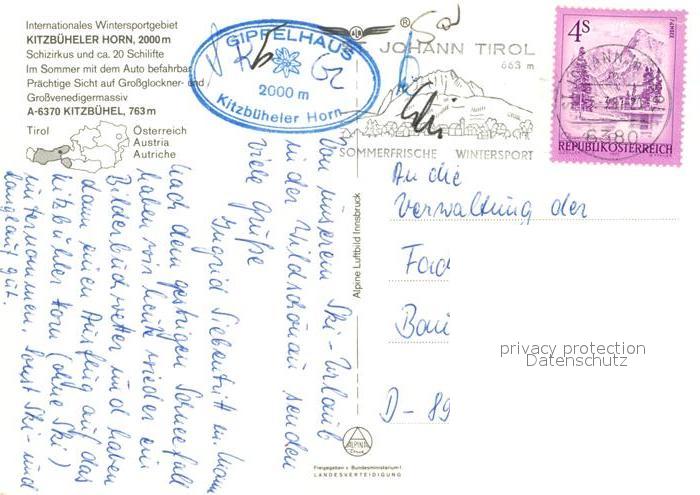 Internationales Wintersportgebiet
KITZBÜHELER HORN, 2000 m
Schizirkus und ca. 20 Schilifte
Im Sommer mit dem Auto befahrbar
Prächtige Sicht auf Großglockner- und
Großvenedigermassiv
A-6370 KITZBÜHEL, 763 m
Tirol
Österreich
Austria
Autriche
GIPFELHAUS
2000 m
Kitzbüheler Horn
JOHANN TIROL
663 m
SOMMERFRISCHE WINTERSPORT
4S
6380
REPUBLIK ÖSTERREICH
Von unserem Ski-Urlaub
in der Wildschönau senden
viele Grüße
Ingrid Siebentritt u. Mann
Nach dem gestrigen Schneefall
haben wir heute wieder ein
Bilderbuchwetter und haben
dann einen Ausflug auf das
Kitzbühler Horn (ohne Ski)
unternommen. Sonst Ski- und
Langlauf gut.
Alpine Luftbild Innsbruck
An die
Verwaltung der
D-89
privacy protection
Datenschutz
ALPINE
Freigegeben v. Bundesministerium f.
LANDESVERTEIDIGUNG